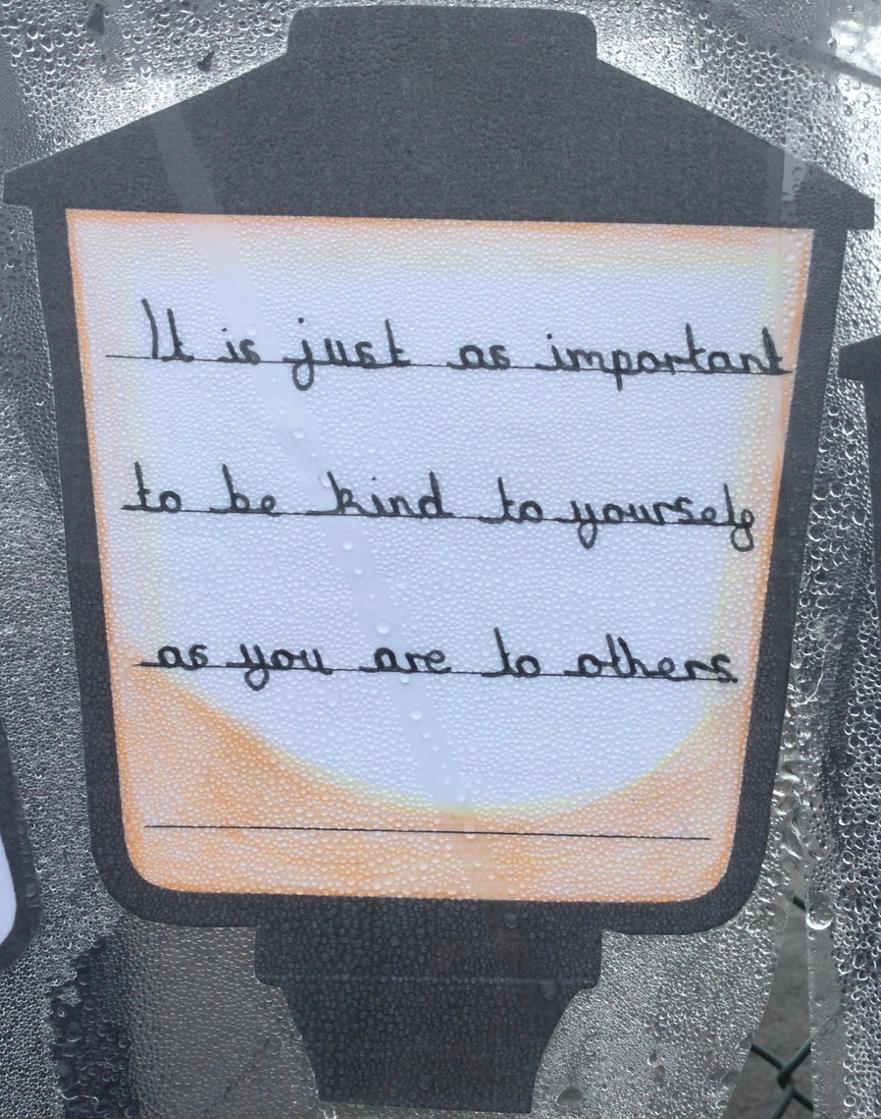 It is just as important
to be kind to yourself
as you are to others.